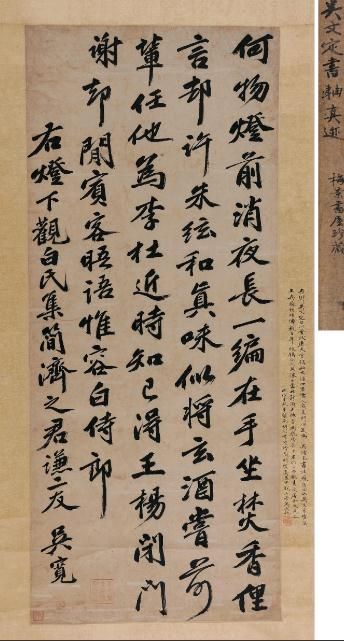 吳文定書軸真迹
梅景書屋珍藏
何物燈前消夜長一編在手坐焚香俚
言却許朱絃和真味似將玄酒嘗前
輩任他為李杜近時知已得王楊閉門
謝却閒賓客晤語惟容白侍郎
右燈下觀白氏集簡濟之君謙二友 吳寬